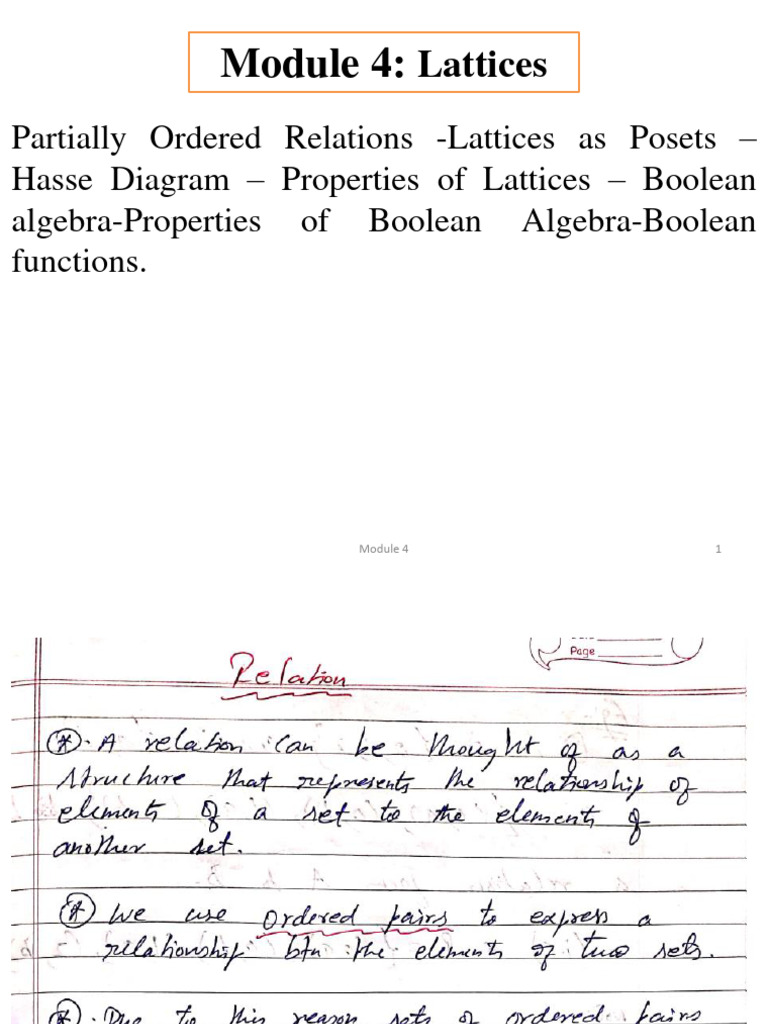 Module 4: Lattices
Partially Ordered Relations -Lattices as Posets –
Hasse Diagram – Properties of Lattices – Boolean
algebra-Properties of Boolean Algebra-Boolean
functions.
Module 4
1
Page
Relation
* . A relation can be thought of as a
structure that represents the relationship of
elements of a set to the elements of
another set.
* We use ordered pairs to express a
relationship btn the elements of two sets.
* . Due to this reason sets of ordered pairs